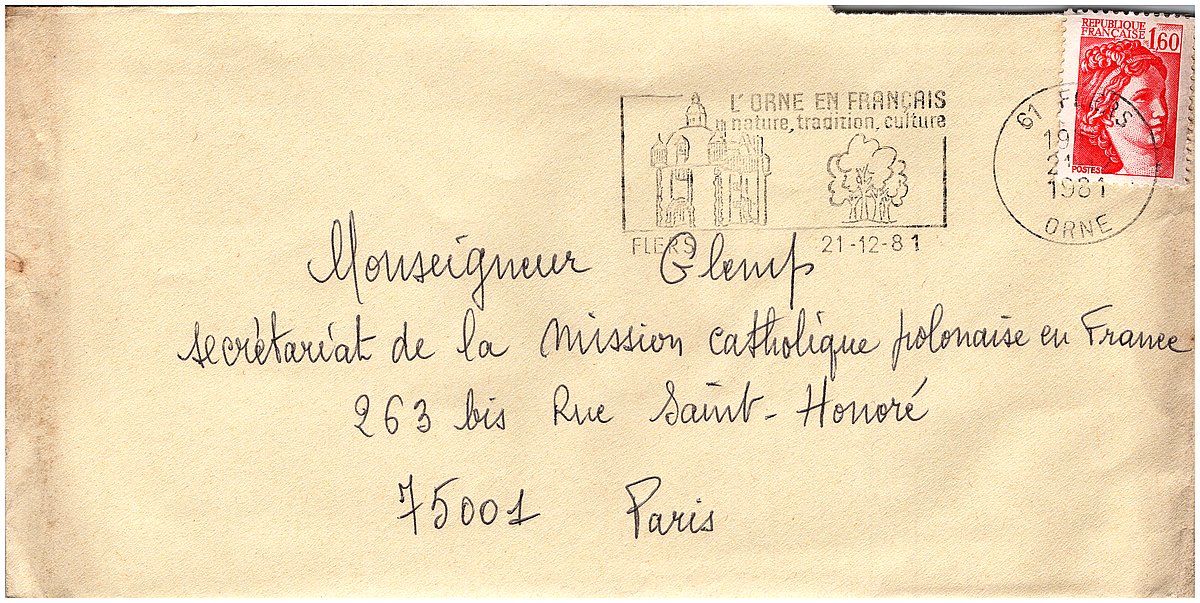 REPUBLIQUE
FRANÇAISE
1,60
POSTES
L'ORNE EN FRANÇAIS
nature, tradition, culture
FLERS 21-12-81
61 FLERS
19
21
1981
ORNE
Monseigneur Glemp
secrétariat de la Mission catholique polonaise en France
263 bis Rue Saint-Honoré
75001 Paris